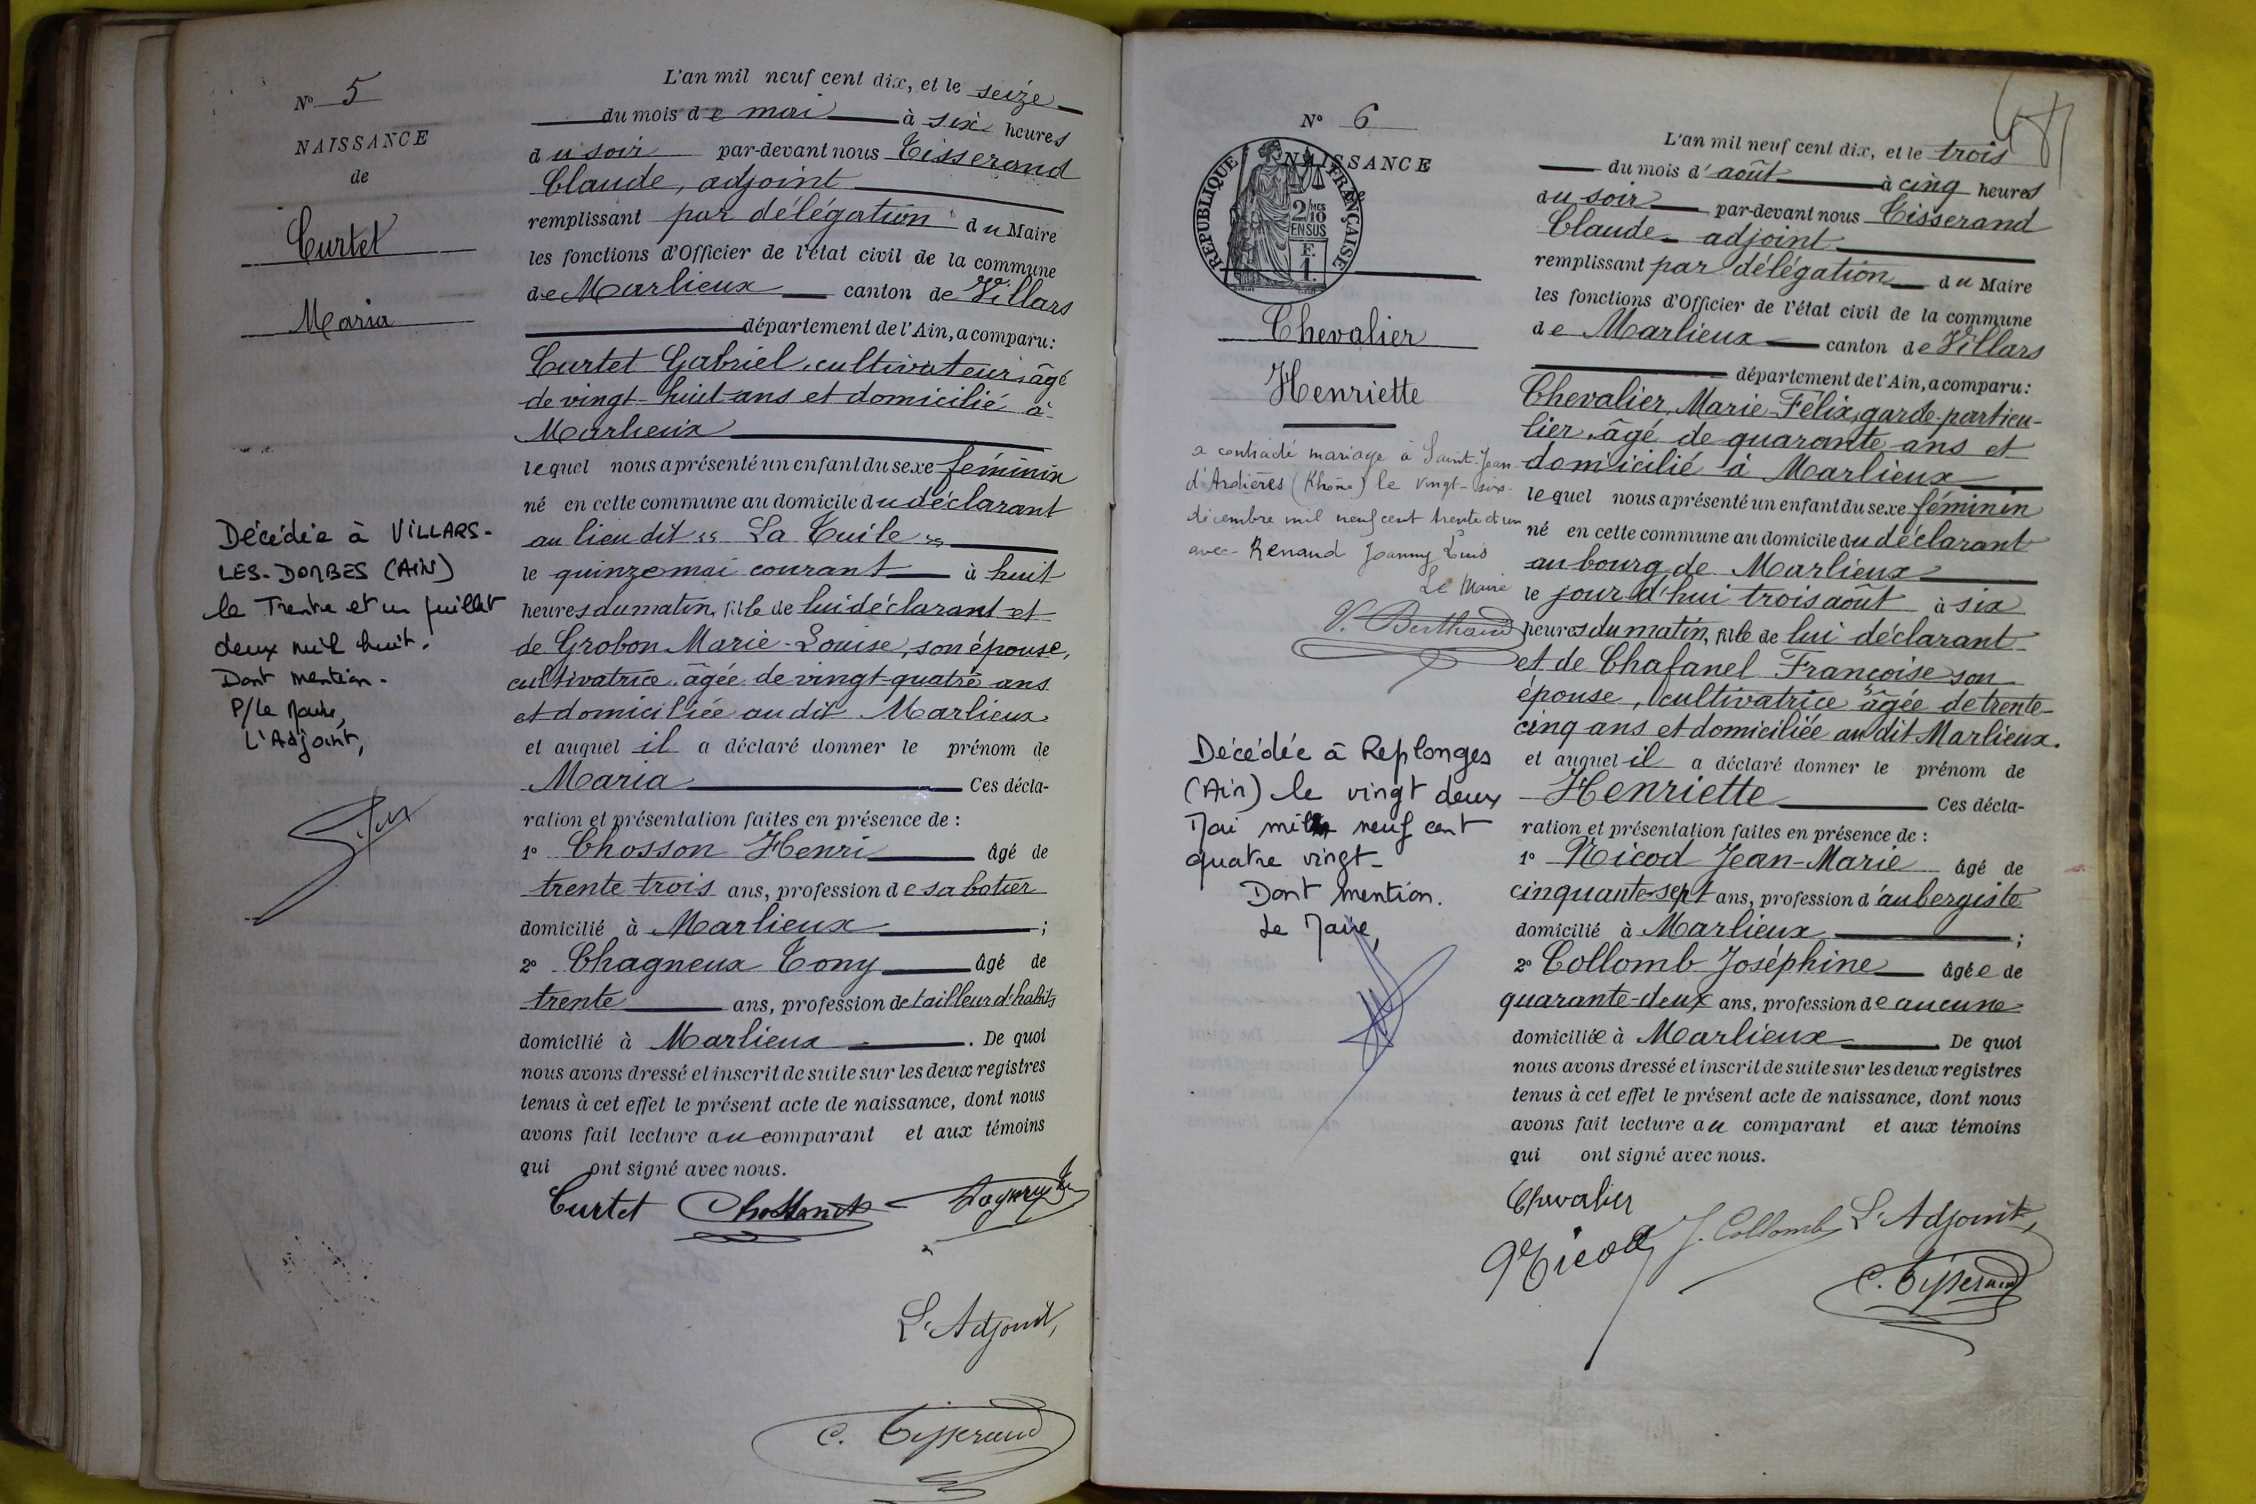 N° 5
NAISSANCE
de
Curtet
Maria
Décédée à VILLARS-
LES-DOMBES (AIN)
le Trente et un juillet
deux mil huit.
Dont mention.
P/Le Maire,
L'Adjoint,
L'an mil neuf cent dix, et le seize
du mois de mai à six heures
du soir par-devant nous Tisserand
Claude, adjoint
remplissant par délégation du Maire
les fonctions d'Officier de l'état civil de la commune
de Marlieux canton de Villars
département de l'Ain, a comparu:
Curtet Gabriel, cultivateur, âgé
de vingt-huit ans et domicilié à
Marlieux
lequel nous a présenté un enfant du sexe féminin
né en cette commune au domicile du déclarant
au lieu dit "La Tuile"
le quinze mai courant à huit
heures du matin, fille de lui déclarant et
de Grobon Marie-Louise, son épouse,
cultivatrice, âgée de vingt-quatre ans
et domiciliée au dit Marlieux
et auquel il a déclaré donner le prénom de
Maria Ces décla-
ration et présentation faites en présence de :
1° Chosson Henri âgé de
trente trois ans, profession de sabotier
domicilié à Marlieux ;
2° Chagneux Tony âgé de
trente ans, profession de tailleur d'habits
domicilié à Marlieux . De quoi
nous avons dressé et inscrit de suite sur les deux registres
tenus à cet effet le présent acte de naissance, dont nous
avons fait lecture au comparant et aux témoins
qui ont signé avec nous.
Curtet
L'Adjoint,
C. Tisserand
N° 6
NAISSANCE
REPUBLIQUE FRANÇAISE
2/10 EN SUS
F. 1
Chevalier
Henriette
a contracté mariage à Saint-Jean-
d'Ardières (Rhône) le vingt-six-
décembre mil neuf cent trente et un
avec Renaud Joanny Louis
Le Maire
V. Berthaud
Décédée à Replonges
(Ain) le vingt deux
Mai mil neuf cent
quatre vingt-
Dont mention.
Le Maire,
L'an mil neuf cent dix, et le trois
du mois d'août à cinq heures
du soir par-devant nous Tisserand
Claude - adjoint
remplissant par délégation du Maire
les fonctions d'Officier de l'état civil de la commune
de Marlieux canton de Villars
département de l'Ain, a comparu:
Chevalier, Marie-Félix, garde-particu-
lier, âgé de quarante ans et
domicilié à Marlieux
lequel nous a présenté un enfant du sexe féminin
né en cette commune au domicile du déclarant
au bourg de Marlieux
le jour d'hui trois août à six
heures du matin, fille de lui déclarant
et de Chafanel Françoise son
épouse, cultivatrice, âgée de trente-
cinq ans et domiciliée au dit Marlieux.
et auquel il a déclaré donner le prénom de
Henriette Ces décla-
ration et présentation faites en présence de :
1° Nicod Jean-Marie âgé de
cinquante-sept ans, profession d'aubergiste
domicilié à Marlieux ;
2° Collomb Joséphine âgée de
quarante-deux ans, profession de aucune
domiciliée à Marlieux De quoi
nous avons dressé et inscrit de suite sur les deux registres
tenus à cet effet le présent acte de naissance, dont nous
avons fait lecture au comparant et aux témoins
qui ont signé avec nous.
Chevalier
Nicod J. Collomb L'Adjoint,
C. Tisserand